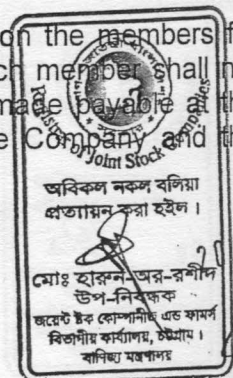 on the members f
ch member shall h
made payable at th
e Company and th
Registrar of Joint Stock Companies
অবিকল নকল বলিয়া
প্রত্যায়ন করা হইল ।
মোঃ হারুন-অর-রশীদ
উপ-নিবন্ধক
জয়েন্ট ষ্টক কোম্পানীজ এন্ড ফার্মস
বিভাগীয় কার্যালয়, চট্টগ্রাম ।
বাণিজ্য মন্ত্রণালয়